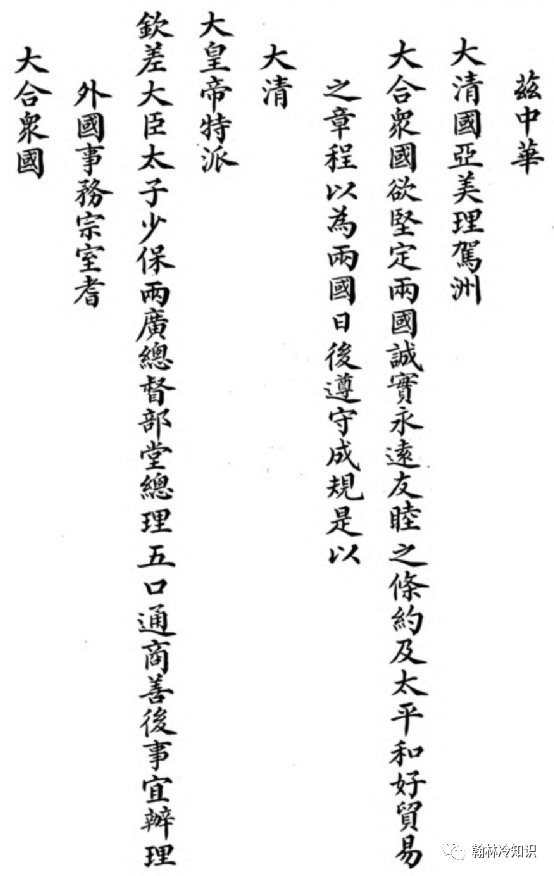 茲中華
大清國亞美理駕洲
大合衆國欲堅定兩國誠實永遠友睦之條約及太平和好貿易
之章程以為兩國日後遵守成規是以
大清
大皇帝特派
欽差大臣太子少保兩廣總督部堂總理五口通商善後事宜辦理
外國事務宗室耆
大合衆國
翰林冷知识